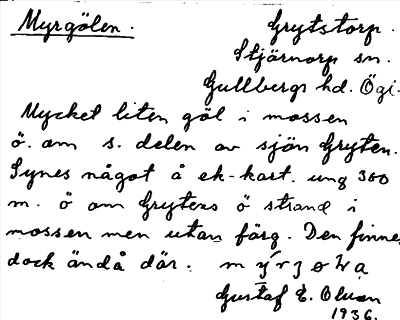 Myrgölen.
Grytstorp.
Stjärnorp sn.
Gullbergs hd. Ögl.
Mycket liten göl i mossen
ö. om s. delen av sjön Gryten.
Synes något å ek-kart. ung 300
m. ö om Grytens ö strand i
mossen men utan färg. Den finnes
dock ändå där.
Gustaf E. Olsson
1936.